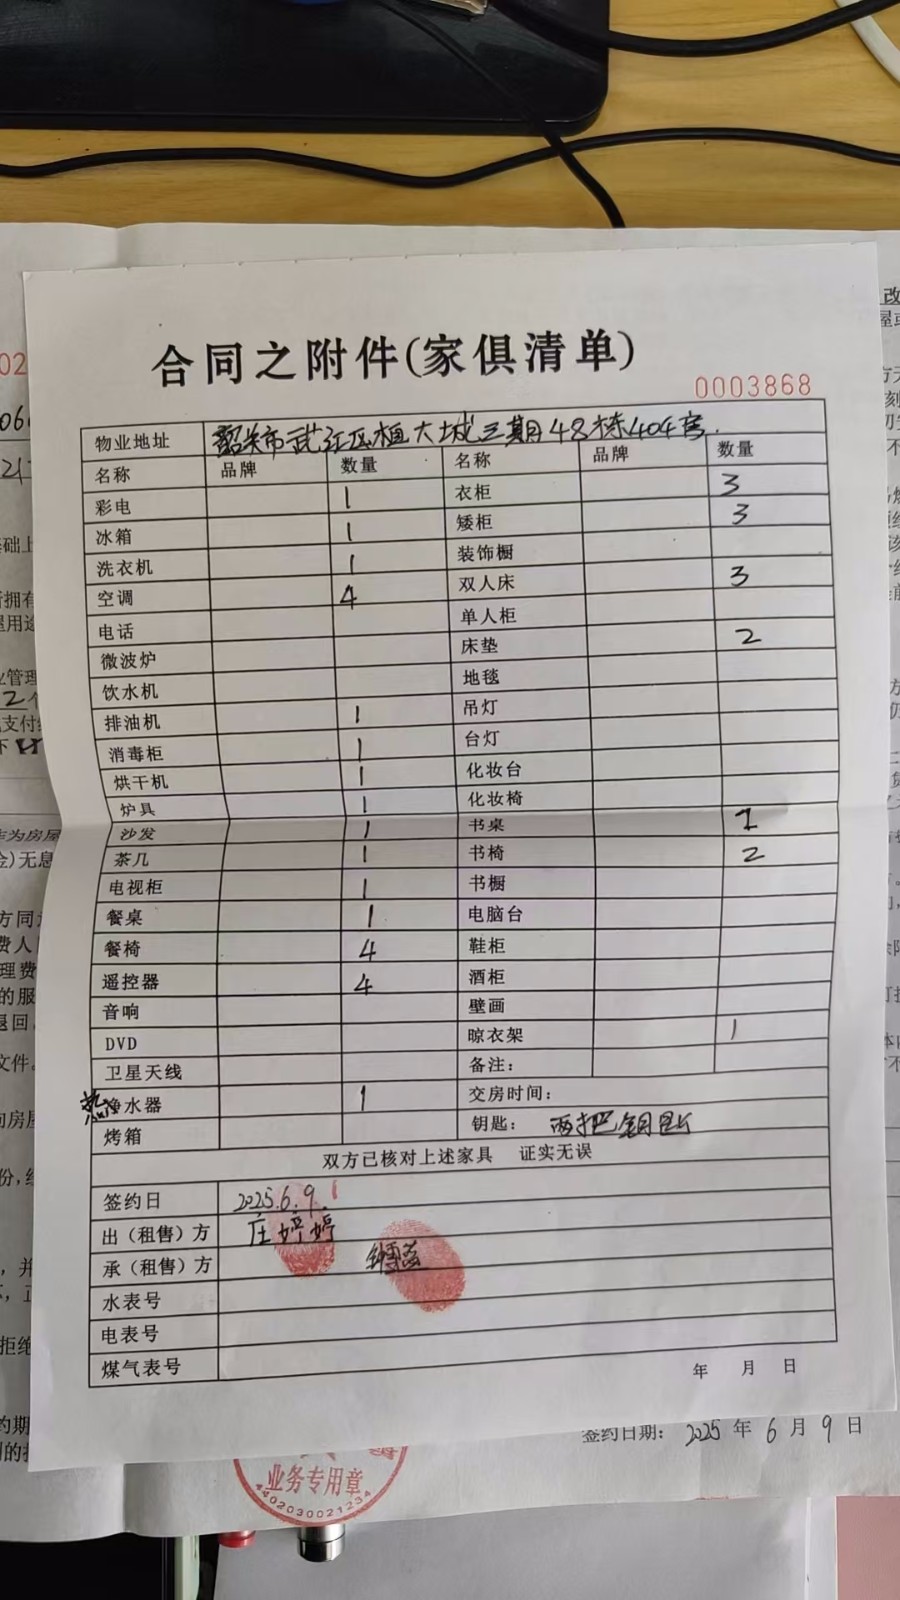 合同之附件(家俱清单)
0003868
物业地址 韶关市武江区恒大城三期48栋404房.
名称 品牌 数量 名称 品牌 数量
彩电 1 衣柜 3
冰箱 1 矮柜 3
洗衣机 1 装饰橱
空调 4 双人床 3
电话 单人柜
微波炉 床垫 2
饮水机 地毯
排油机 1 吊灯
消毒柜 1 台灯
烘干机 1 化妆台
炉具 1 化妆椅
沙发 1 书桌 1
茶几 1 书椅 2
电视柜 1 书橱
餐桌 1 电脑台
餐椅 4 鞋柜
遥控器 4 酒柜
音响 壁画
DVD 晾衣架 1
卫星天线 备注:
热水器 1 交房时间:
烤箱 钥匙: 两把钥匙
双方已核对上述家具 证实无误
签约日 2025.6.9.
出(租售)方 庄婷婷
承(租售)方
水表号
电表号
煤气表号
年 月 日
签约日期: 2025 年 6 月 9 日
业务专用章
4402030021234